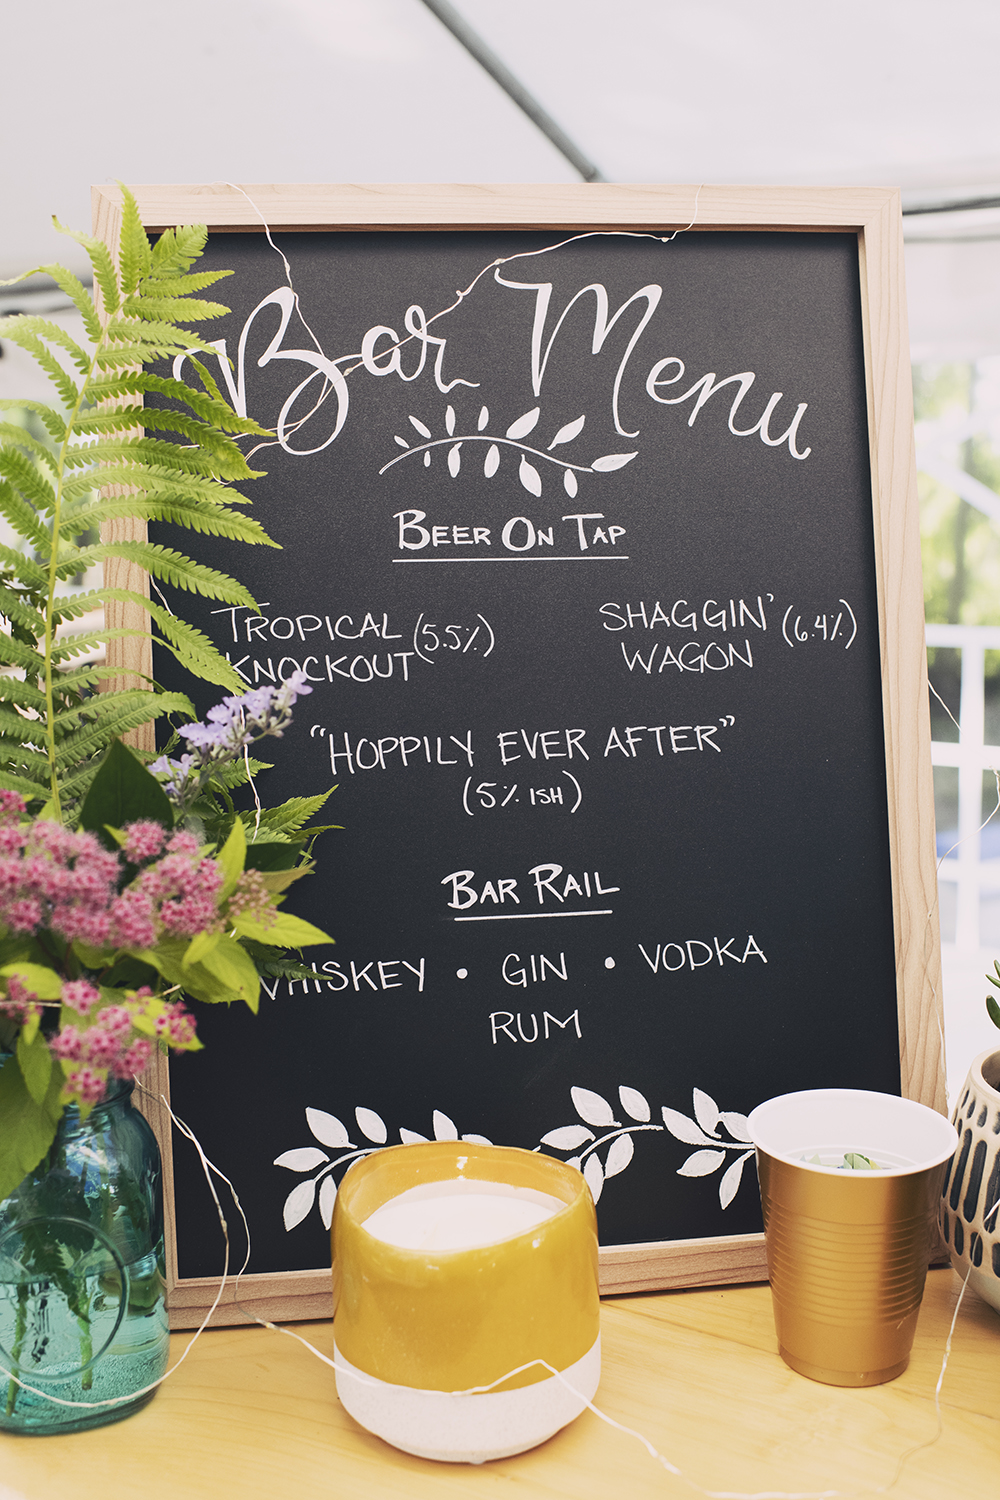 Bar Menu
BEER ON TAP
TROPICAL (5.5%)
KNOCKOUT
SHAGGIN' (6.4%)
WAGON
"HOPPILY EVER AFTER"
(5% ISH)
BAR RAIL
WHISKEY • GIN • VODKA
RUM